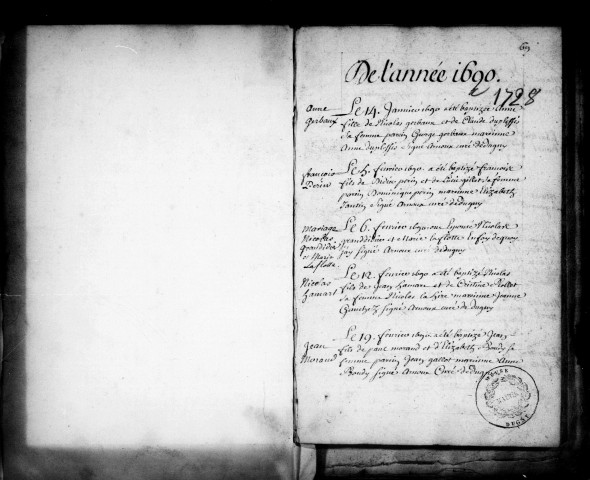 De l'année 1690.
a 1728
Anne
gerbaux
Le 14. Janvier 1690 a été baptizée Anne
fille de Nicolas gerbaux et de Claude duplessis
sa femme parein george gerbaux mareinne
Anne duplessis signé Arnoux curé de dugny
françois
Perin
Le 5. fevrier 1690 a été baptizé francois
fils de Didier perin et de gillet sa femme
parein Dominique perin mareinne Elizabeth
signé Arnoux curé de dugny
Mariage
Nicolas
granddidier
et Marie
La flotte
Le 6. fevrier 1690 epousé Nicolas
granddidier et Marie la flotte en foy de quoy
j'ay signé Arnoux curé de dugny
Nicolas
hamart
Le 12. fevrier 1690 a été baptizé Nicolas
fils de Jean hamart et de Cristine Rollet
sa femme Nicolas la hire mareinne Jeanne
signé Arnoux curé de dugny
Jean
Morand
Le 19. fevrier 1690 a été baptizé Jean
fils de morand et d'Elizabeth Rondy sa
femme parein Jean gallot mareinne Anne
Rondy signé Arnoux Curé de dugny
MEUSE
DUGNY